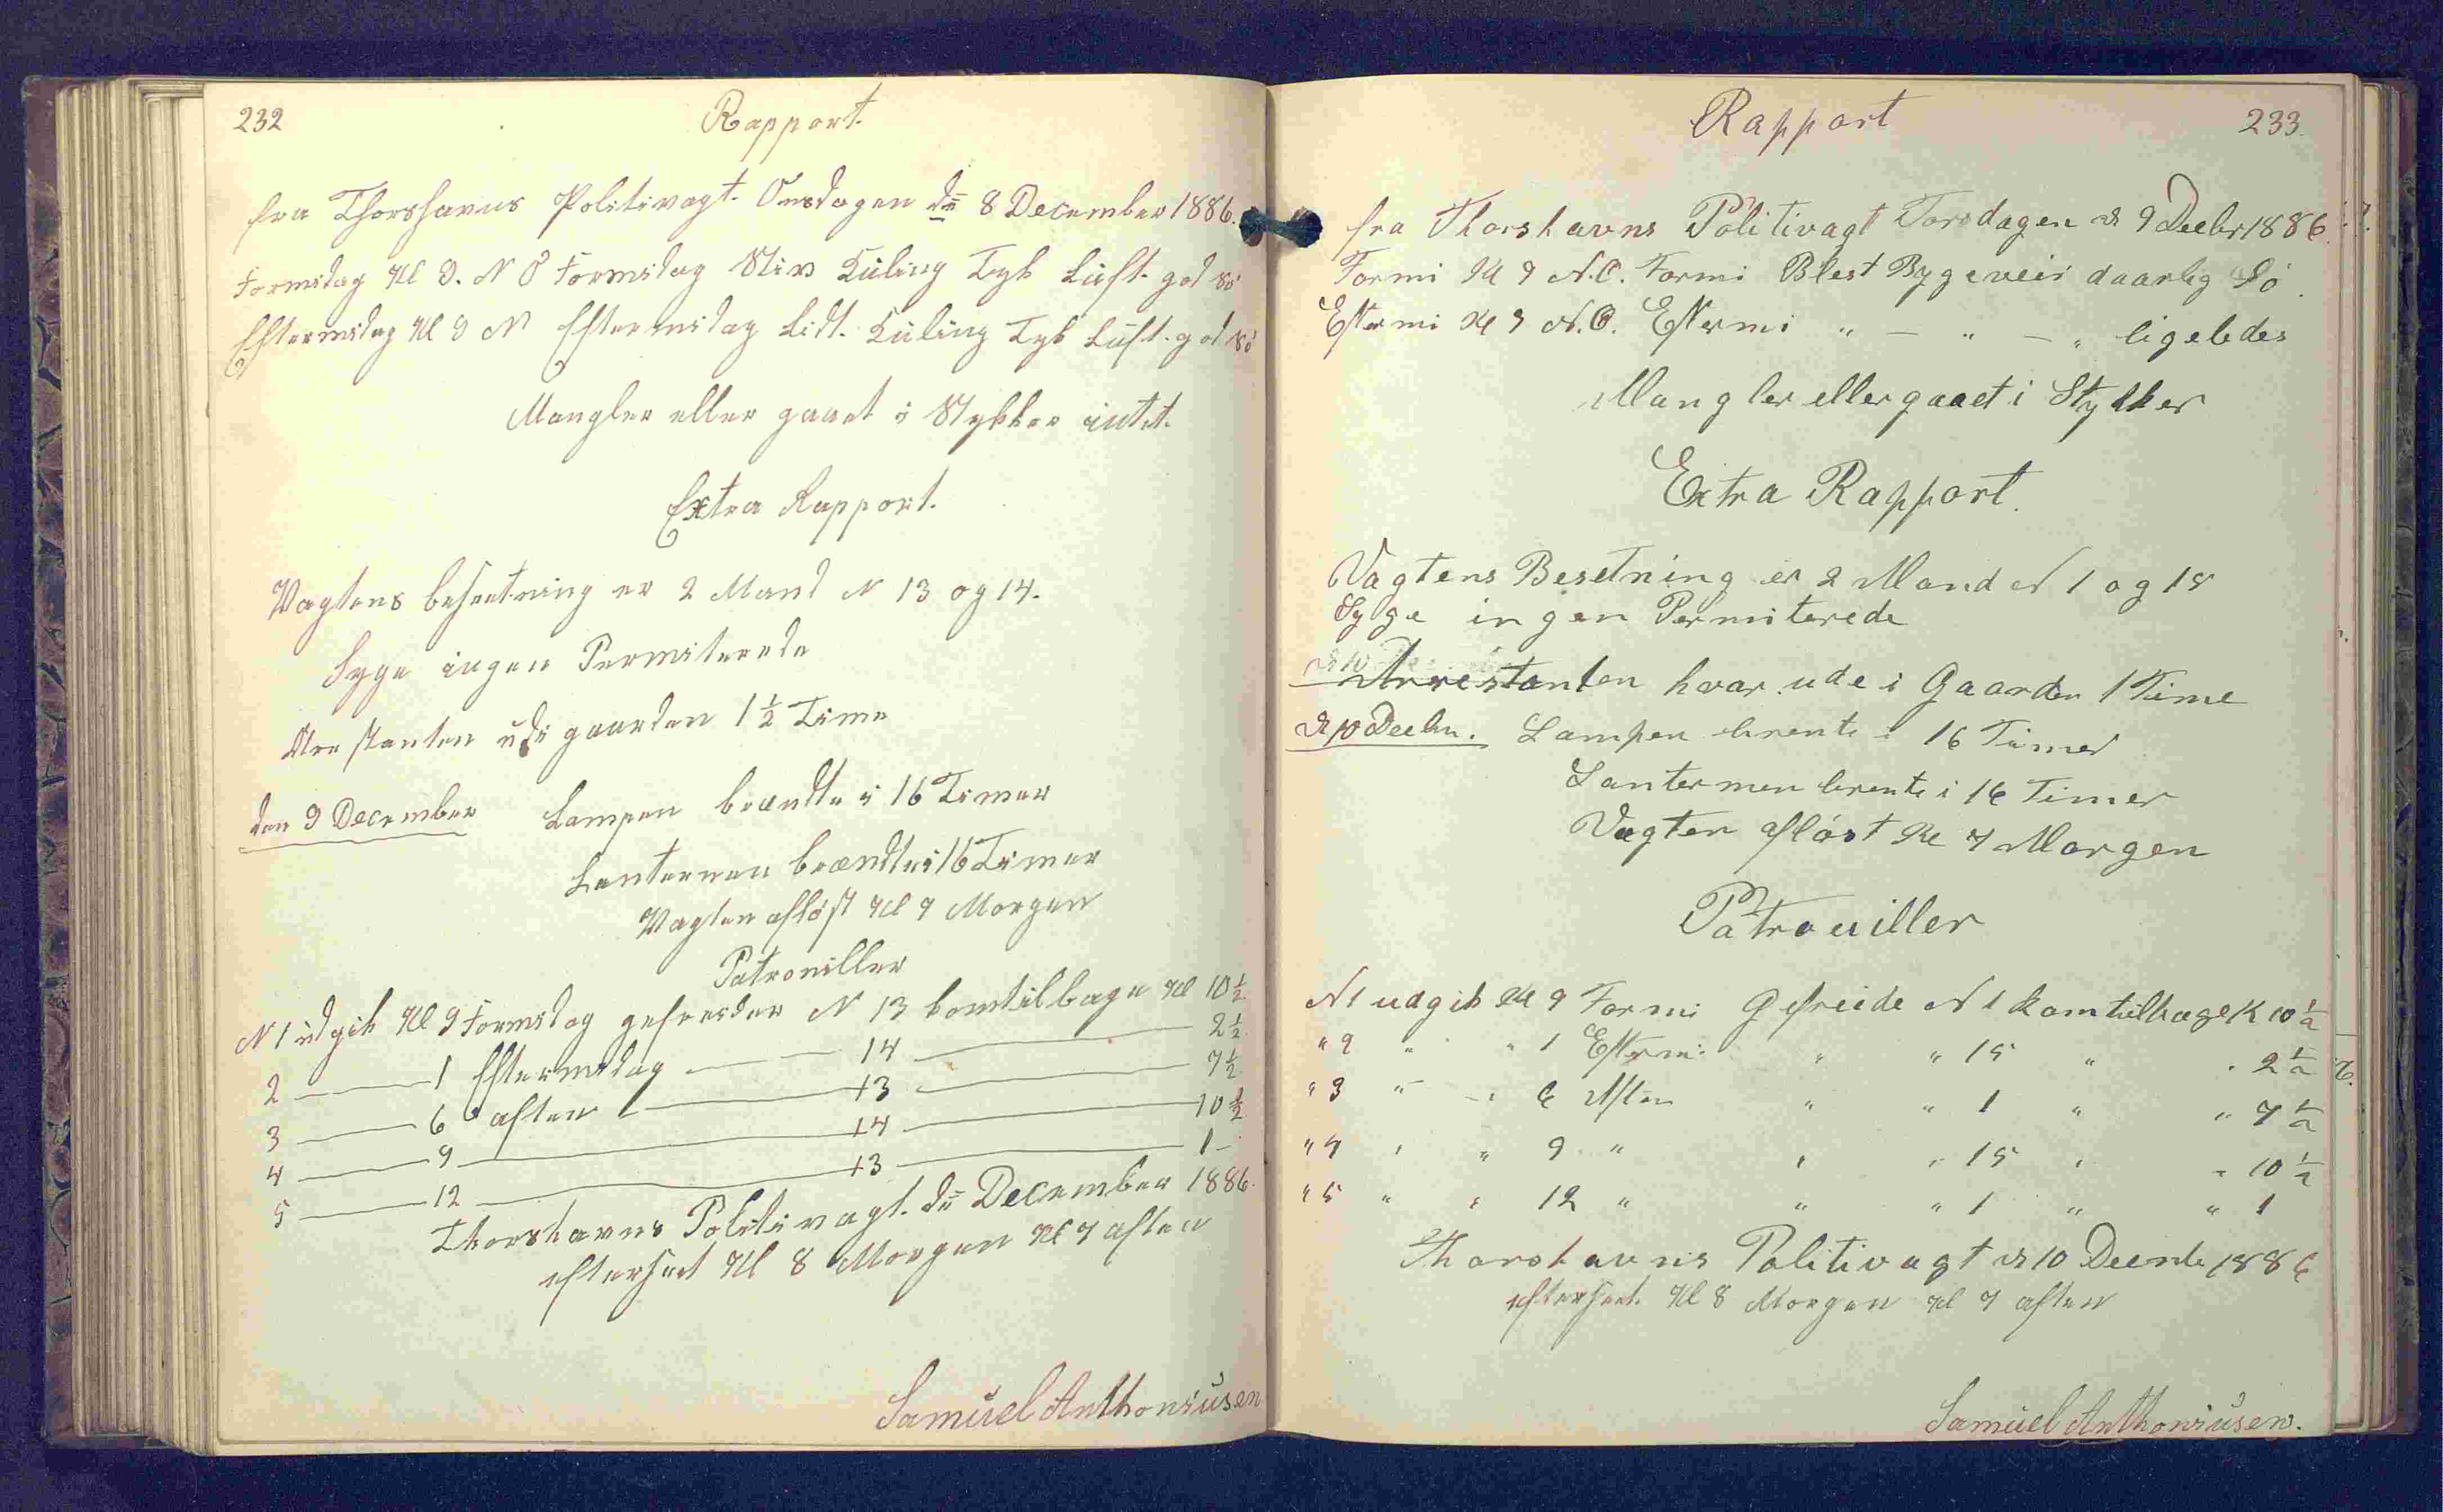 232
Rapport.
fra Thorshavns Politivagt. Onsdagen dn 8 December 1886.
Formidag Kl 9. N O Formidag Stiv Kuling Tyk Luft. god Sö
Eftermidag Kl 9 N Eftermidag Lidt. Kuling Tyk Luft. god Sö
Mangler eller gaaet i Stykker intet.
Extra Rapport.
Vagtens besætning er 2 Mand N 13 og 14.
Syge ingen Permiterede
Arestanten udi gaarden 1½ Time
den 9 December Lampen brændte i 16 Timer
Lanternen brændte i 16 Timer
Vagten aflöst Kl 7 Morgen
Patrouiller
N 1 udgik Kl 9 Formidag gefreider N 13 kom tilbage Kl 10½
2 — 1 Eftermidag — 14 — 2½
3 — 6 aften — 13 — 7½
4 — 9 — 14 — 10½
5 — 12 — 13 — 1 -
Thorshavns Politivagt. dn December 1886.
efterseet Kl 8 Morgen Kl 7 aften
Samuel Anthoniusen
Rapport
233.
fra Thorshavns Politivagt Torsdagen d 9 Decbr 1886.
Formi Kl 9 N.O. Formi Blest Bygeveir daarlig Sö.
Eftermi Kl 9 N.O. Eftermi " — " — " ligeledes
Mangler eller gaaet i Stykker
Extra Rapport.
Vagtens Besetning er 2 Mand N 1 og 15
Syge ingen Permiterede
Arrestanten hvar ude i Gaarden 1 Time
d 10 Decbr. Lampen brente i 16 Timer
Lanternen brente i 16 Timer
Vagten aflöst Kl 7 Morgen
Patrouiller
N 1 udgik Kl 9 Formi Gefreide N 1 kom tilbage K 10½
" 2 " " 1 Eftermi " " 15 " " 2½
" 3 " " 6 Aften " " 1 " " 7½
" 4 " " 9 " " " 15 " " 10½
" 5 " " 12 " " " 1 " " 1
Thorshavns Politivagt d 10 Decmbr 1886
efterseet. Kl 8 Morgen Kl 7 aften
Samuel Anthoniusen.